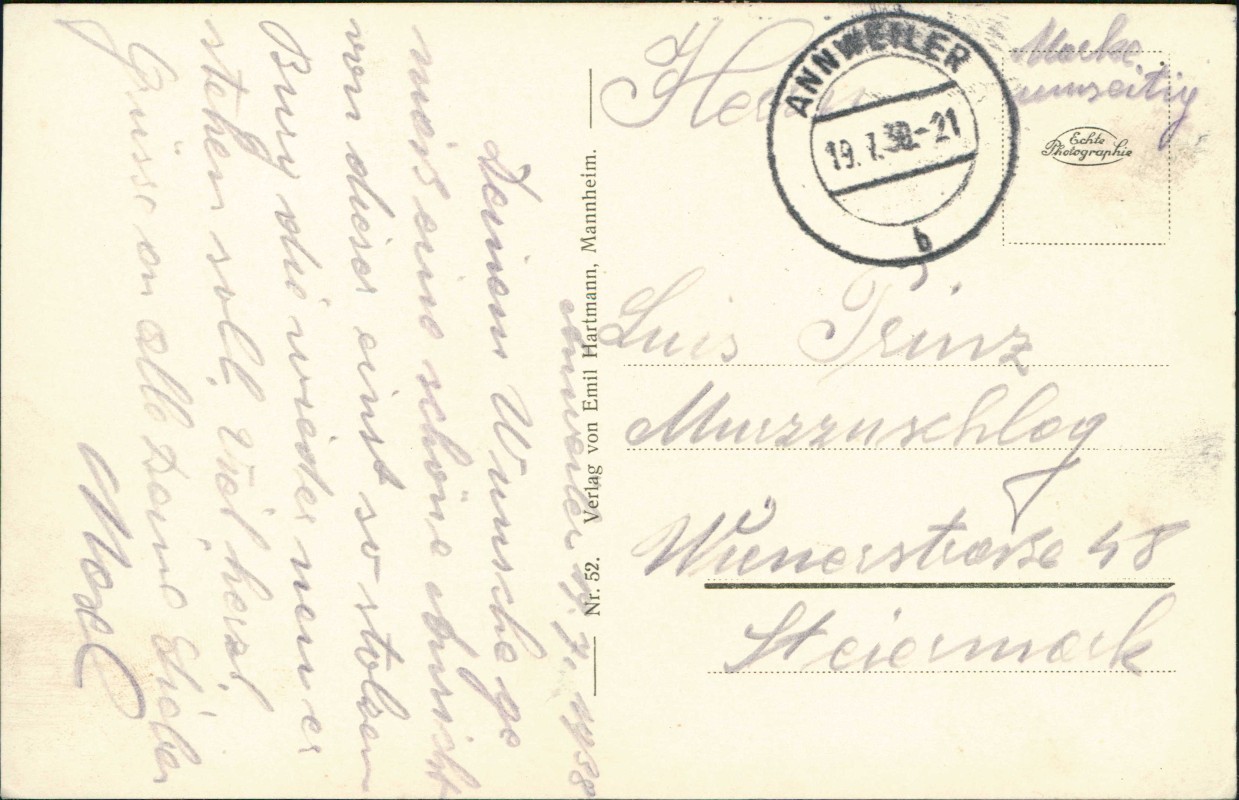 Annweiler 19.7.1938
Deinem Wunsche ge
mäß eine schöne Ansicht
von dieser einst so stolzen
Burg die wieder neu er
stehen soll. Viel herzl.
Grüsse an alle Deine Lieben
Marke
umseitig
ANNWEILER
19.7.38.-21
b
Echte
Photographie
Herrn
Luis Prinz
Mürzzuschlag
Wienerstrasse 48
Steiermark
Nr. 52. Verlag von Emil Hartmann, Mannheim.